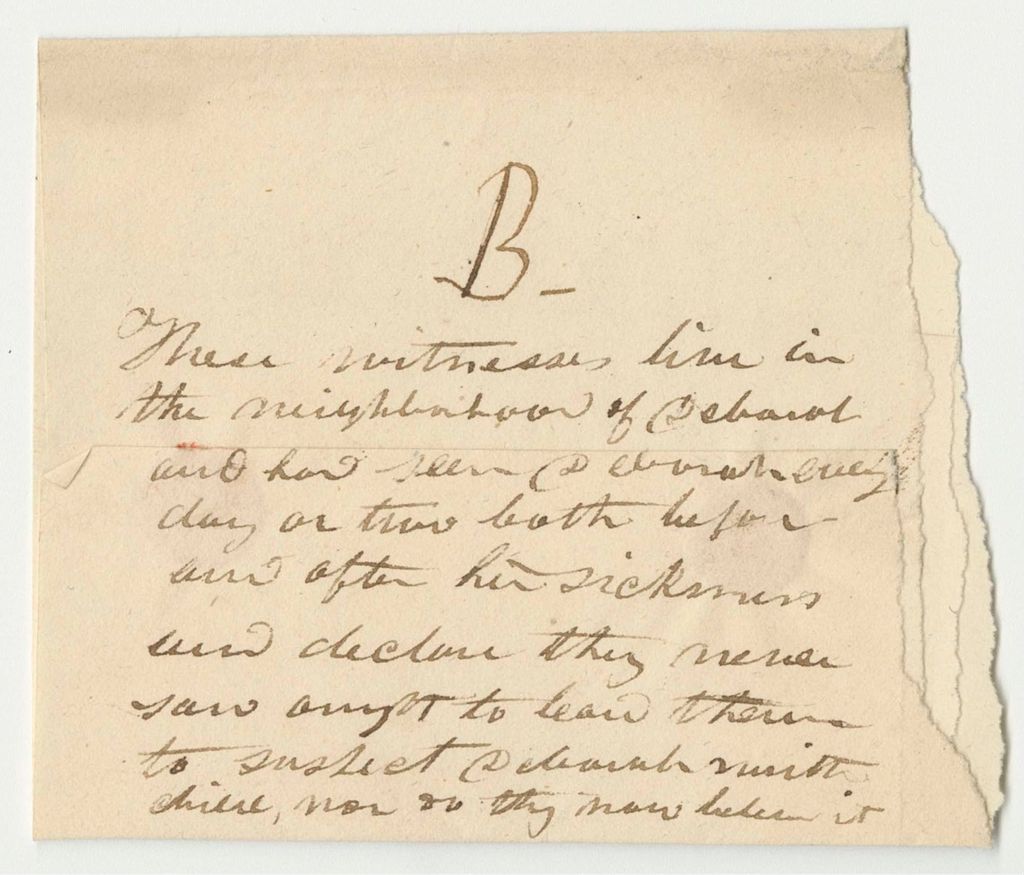 B-
These witnesses live in
the neighborhood of Deborah
and had seen Deborah every
day or two both before
and after her sickness
and declare they never
saw aught to lead them
to suspect Deborah with
child, nor do they now believe it